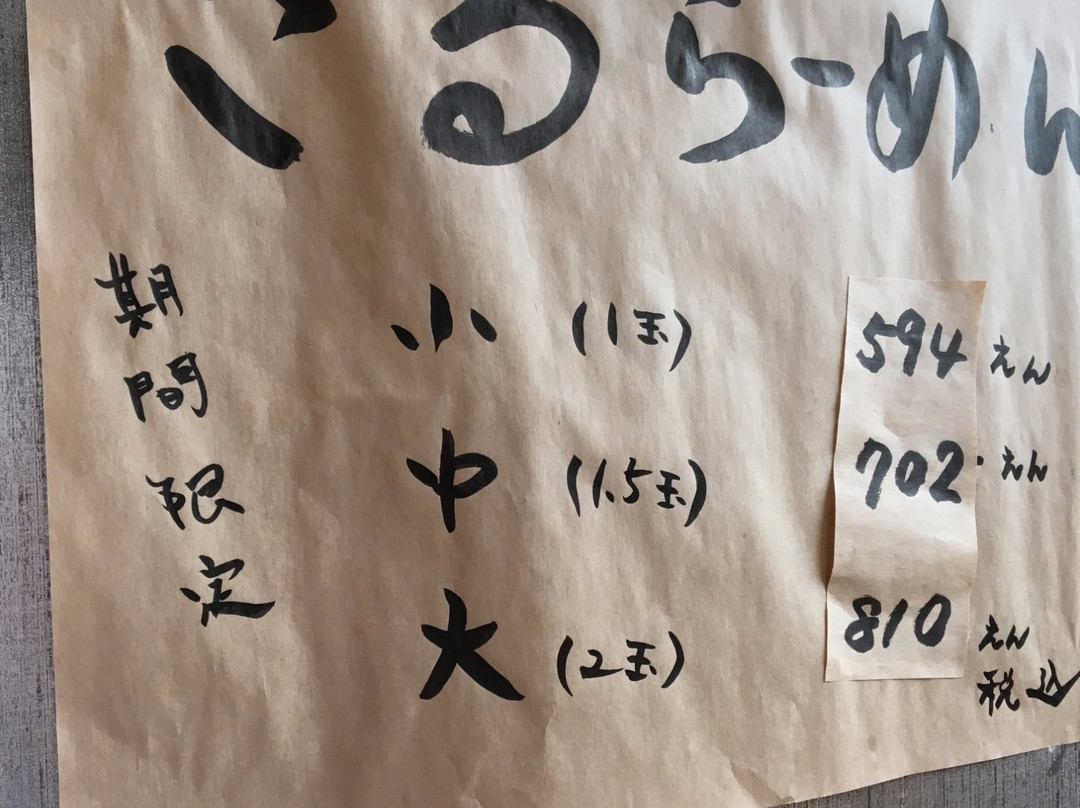 ざるらーめん
期間限定
小 (1玉) 594 えん
中 (1.5玉) 702 えん
大 (2玉) 810 えん
税込